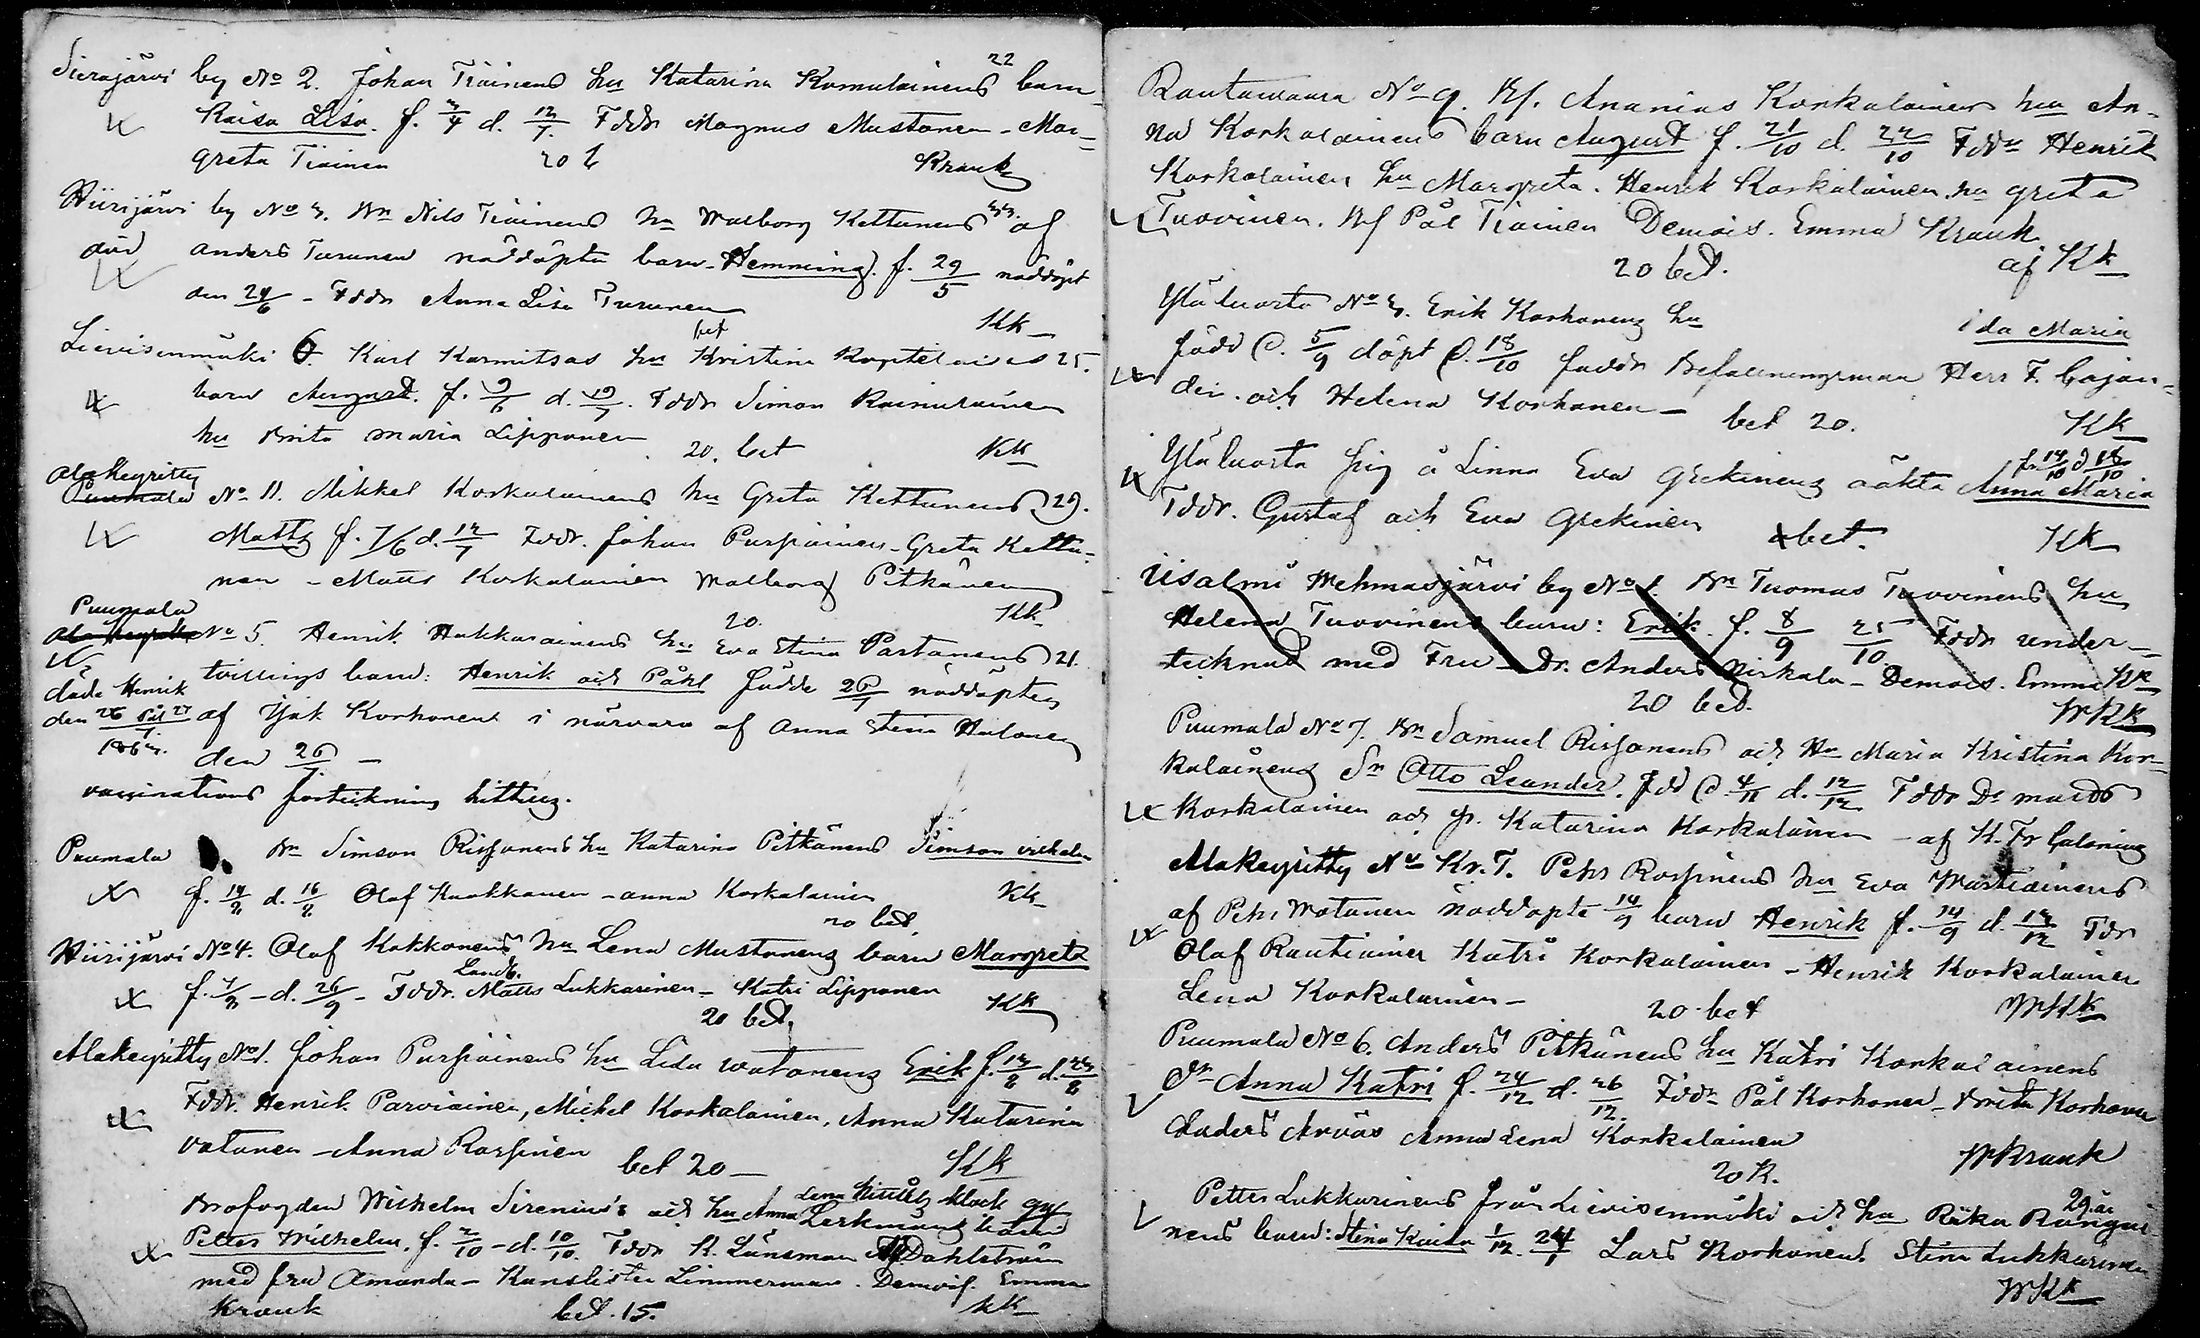 22
Sierajärvi by No 2. Johan Tiainens hu Katarina Komulainens barn
Kaisa Lisa. f. 3/4 d. 12/7. Fddr Magnus Mustonen - Mar=
greta Tiainen 20 Krank
Hiirijärvi by No 3. Bn Nils Tiainens hu Walborg Kettunens 33. af
död Anders Turunen nöddöpta barn - Hemming. f. 29/5 nöddöpt
den 24/6 - Fddr Anna Lisa Turunen
KK
bet
Lievisenmäki 6. Karl Karmitsas hu Kristina 25.
barn August. f. 9/6 d. 19/7. Fddr Simon Rainulainen
hu Brita Maria Lipponen 20. bet KK
Alakeyritty
Puumala No 11. Mikkel Korkalainens hu Greta Kettunens 29.
Matts f. 7/6 d. 12/7 Fddr. Johan Purpiainen - Greta Kettu=
nen - Matts Korkalainen Walborg Pitkänen
20. KK
Puumala
Alakeyritty No 5. Henrik Hakkarainens hu Eva Stina Partanens 21.
tvillings barn: Henrik och Påhl födde 26/7 nöddöpta
döde Henrik
den 26 Pål 27/7.
af Isak Korhonen i närvara af Anna Stina Halonen
186
den 26/7. -
vaccinations förteckning hittils.
Puumala Bn Simson Rissanens hu Katarina Pitkänens Simson
f. 14/8 d. 16/8 Olof Kaakkonen - Anna Korkalainen KK
20 bet.
Hiirijärvi No 4. Olof Kokkonens hu Lena Mustonens barn Margreta
Landb.
f. 7/8 - d. 26/9 - Fddr. Matts Lukkarinen - Katri Lipponen KK
20 bet.
Alakeyritty No 1. Johan Purpiainens hu Lida Watanens Erik f. 12/8 d. 23/8
Fddr. Henrik Parviainen, Mickel Korkalainen, Anna Katarina
Vatanen - Anna Raspinen bet 20 - KK
Brofogden Wilhelm Sirenius och hu Anna Lerkmans
Petter Wilhelm, f. 2/10 - d. 10/10. Fddr K. Länsman Dahlström
med fru Amanda - Kanslisten Limmerman. Demois. Emma
Krank bet. 15. KK
Rautawaara No 9. Bf. Ananias Korkalainens hu An=
na Korkalainens barn August f. 21/10 d. 22/10 Fddr Henrik
Korkalainen hu Margreta. Henrik Korkalainen hu Greta
Tuovinen. Bf Pål Tiainen Demois. Emma Krank
20 bet. af KK
Yläluosta No 3. Erik Korhonens hu Ida Maria
född d. 5/9 döpt d. 18/10 faddr Befallningsman Herr F. Cajan=
der och Helena Korhonen - bet 20. KK
f. 14/10 d 18/10
Yläluosta pig å Linna Eva Grekinens oäkta Anna Maria
Fddr. Gustaf och Eva Grekinen bet. KK
Iisalmi Wehmasjärvi by No 1. Bn Tuomas Tuovinens hu
Helena Tuovinens barn: Erik f. 8/9 25/10 Fddr under=
tecknad med Fru - Dr. Anders Niskala - Demois. Emma Kk
20 bet. WKK
Puumala No 7. Bn Samuel Rissanens och Hu Maria Kristina Kor=
kalainens Sn Otto Leander. född d. 4/11 d. 12/12 Fddr Dr
Korkalainen och p. Katarina Korkalainen - af K. Fr
Alakeyritty No Kr. T. Pehr Raspinens hu Eva Martiainens
af Pehr Watanen nöddöpte 14/9 barn Henrik f. 14/9 d. 12/12 Fdr
Olof Rautiainen Katri Korkalainen - Henrik Korkalainen
Lena Korkalainen - 20 bet WKK
Puumala No 6. Anders Pitkänens hu Katri Korkalainens
Dr Anna Katri f. 24/12 d. 26/12. Fddr Pål Korhonen - Brita Korhonen
Anders Arvas Anna Lena Korkalainen
20 K. WKrank
29 år
Petter Lukkarinens från Lievisenmäki och hu Rika
nens barn: Stina Kaisa 1/12. 24/1 Lars Korhonen. Stina Lukkarinen
WKK